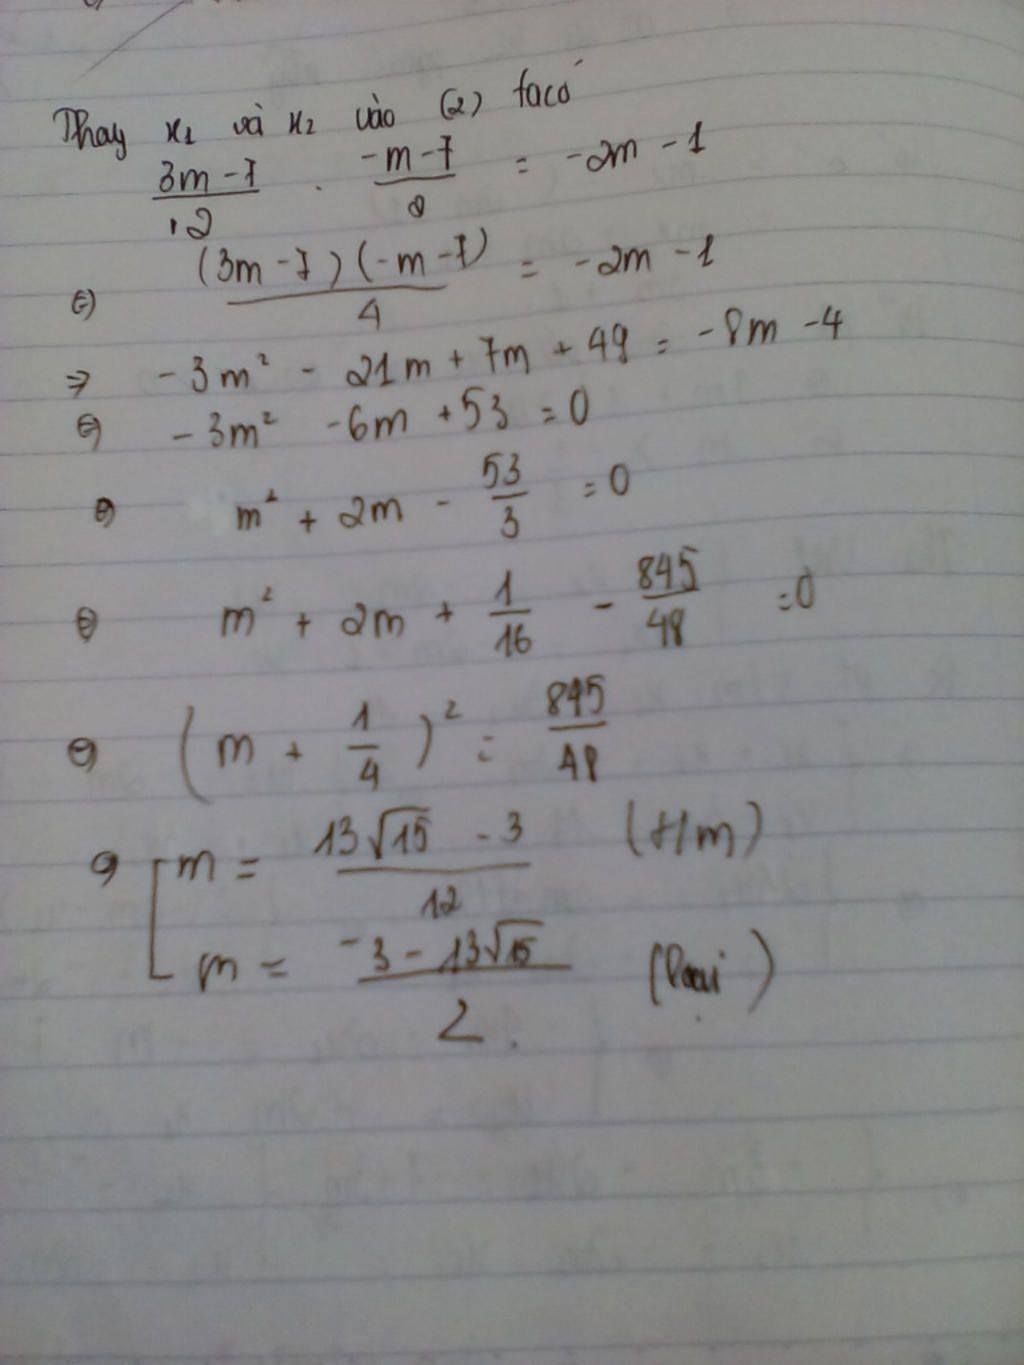 Thay x₁ và x₂ vào (2) ta có
(3m - 7)/2 . (-m - 7)/2 = -2m - 1
⇔ ((3m - 7)(-m - 7))/4 = -2m - 1
⇒ -3m² - 21m + 7m + 49 = -8m - 4
⇔ -3m² - 6m + 53 = 0
⇔ m² + 2m - 53/3 = 0
⇔ m² + 2m + 1/16 - 845/48 = 0
⇔ (m + 1/4)² = 845/48
⇔ [ m = (13√15 - 3)/12 (t/m)
m = (-3 - 13√15)/2 (loại)